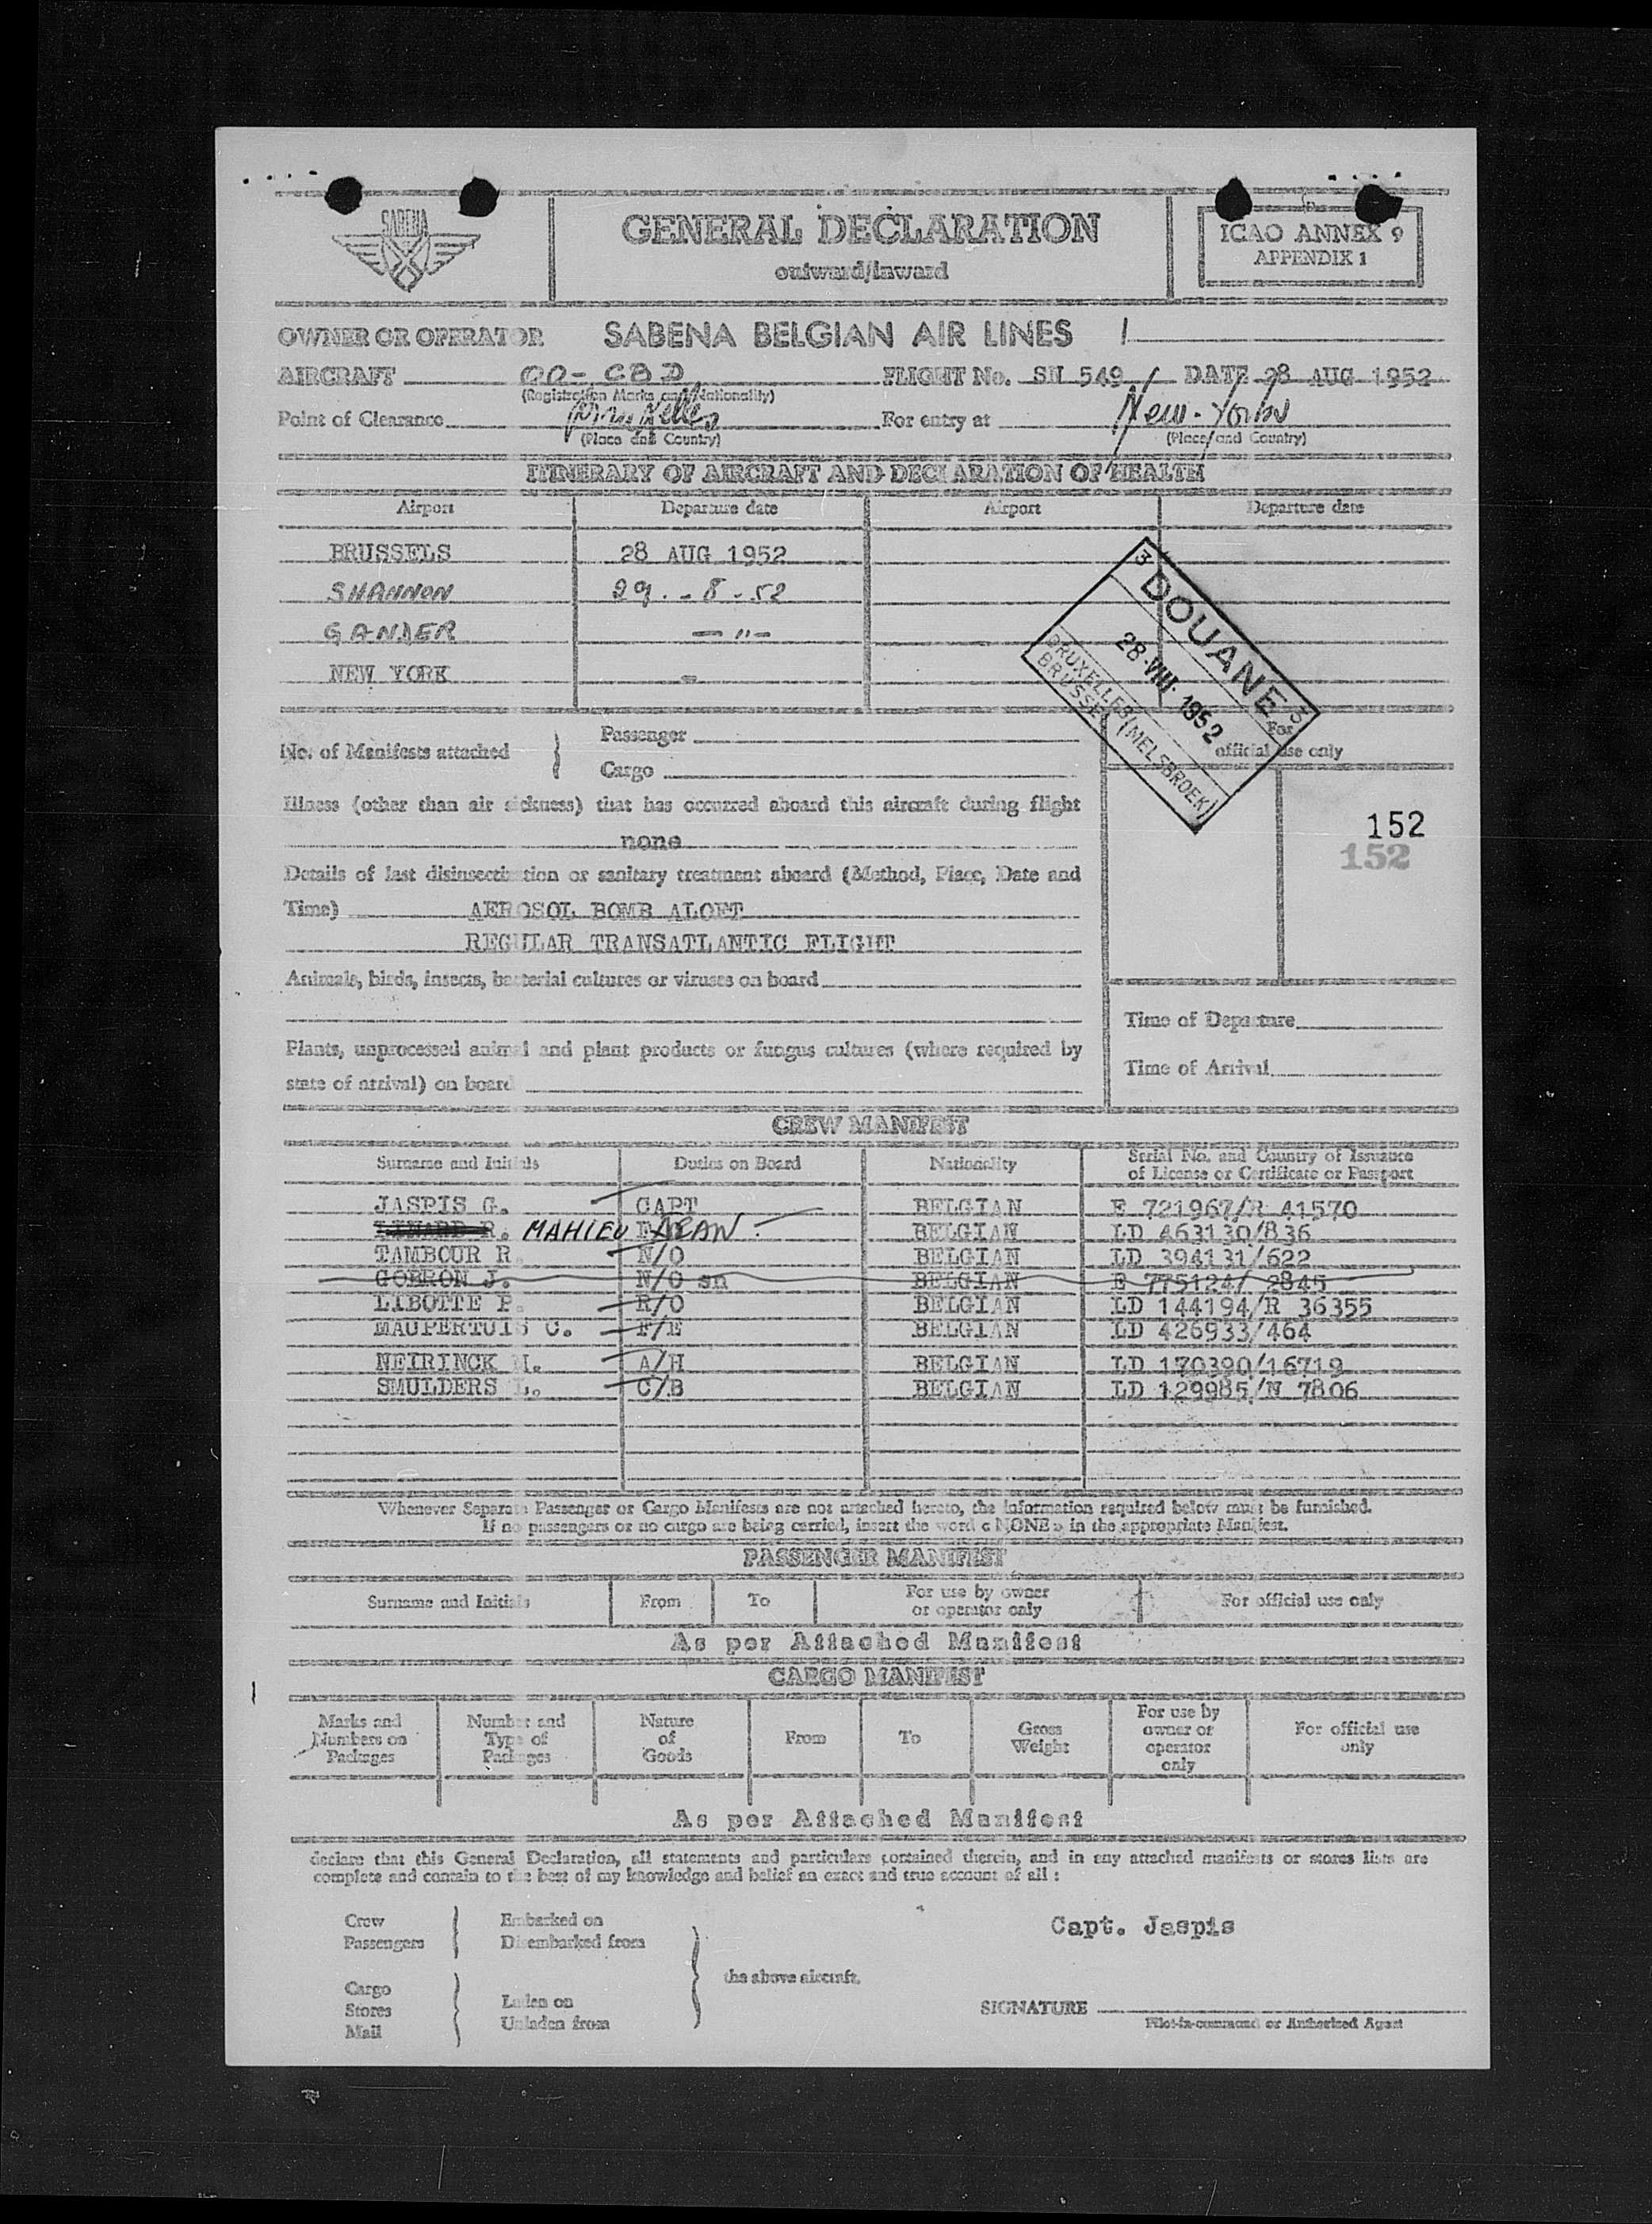 SABENA
GENERAL DECLARATION
outward/inward
ICAO ANNEX 9
APPENDIX 1
OWNER OR OPERATOR SABENA BELGIAN AIR LINES
AIRCRAFT OO-CBD FLIGHT No. SN 549 DATE 28 AUG 1952
(Registration Marks and Nationality)
Point of Clearance Bruxelles For entry at New-York
(Place and Country) (Place and Country)
ITINERARY OF AIRCRAFT AND DECLARATION OF HEALTH
Airport Departure date Airport Departure date
BRUSSELS 28 AUG 1952
SHANNON 29.-8-52
GANDER -"-
NEW YORK -
3 DOUANE 3
28·VIII·1952
BRUXELLES (MELSBROEK)
BRUSSEL
No. of Manifests attached
Passenger
Cargo
For
official use only
Illness (other than air sickness) that has occurred aboard this aircraft during flight
none
152
152
Details of last disinsectization or sanitary treatment aboard (Method, Place, Date and
Time) AEROSOL BOMB ALOFT
REGULAR TRANSATLANTIC FLIGHT
Animals, birds, insects, bacterial cultures or viruses on board
Time of Departure
Plants, unprocessed animal and plant products or fungus cultures (where required by
state of arrival) on board
Time of Arrival
CREW MANIFEST
Surname and Initials Duties on Board Nationality Serial No. and Country of Issuance
of License or Certificate or Passport
JASPIS G. CAPT BELGIAN E 721967/R 41570
R. MAHIEU BELGIAN LD 463130/836
TAMBOUR R. N/O BELGIAN LD 394131/622
GOBRON J. N/O sn BELGIAN E 775124/ 2845
LIBOTTE P. R/O BELGIAN LD 144194/R 36355
MAUPERTUIS C. F/E BELGIAN LD 426933/464
NEIRINCK M. A/H BELGIAN LD 170390/16719
SMULDERS L. C/B BELGIAN LD 129985/N 7806
Whenever Separate Passenger or Cargo Manifests are not attached hereto, the information required below must be furnished.
If no passengers or no cargo are being carried, insert the word « NONE » in the appropriate Manifest.
PASSENGER MANIFEST
Surname and Initials From To For use by owner
or operator only For official use only
As per Attached Manifest
CARGO MANIFEST
Marks and
Numbers on
Packages
Number and
Type of
Packages
Nature
of
Goods
From
To
Gross
Weight
For use by
owner or
operator
only
For official use
only
As per Attached Manifest
declare that this General Declaration, all statements and particulars contained therein, and in any attached manifests or stores lists are
complete and contain to the best of my knowledge and belief an exact and true account of all :
Crew
Passengers
Embarked on
Disembarked from
Capt. Jaspis
the above aircraft.
Cargo
Stores
Mail
Laden on
Unladen from
SIGNATURE
Pilot-in-command or Authorized Agent